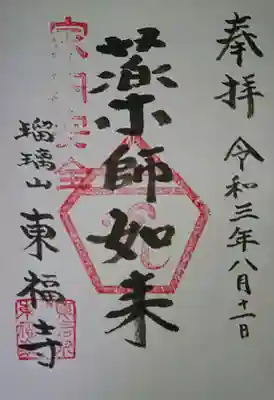 奉拝 令和三年八月十一日
薬師如来
瑠璃山 東福寺